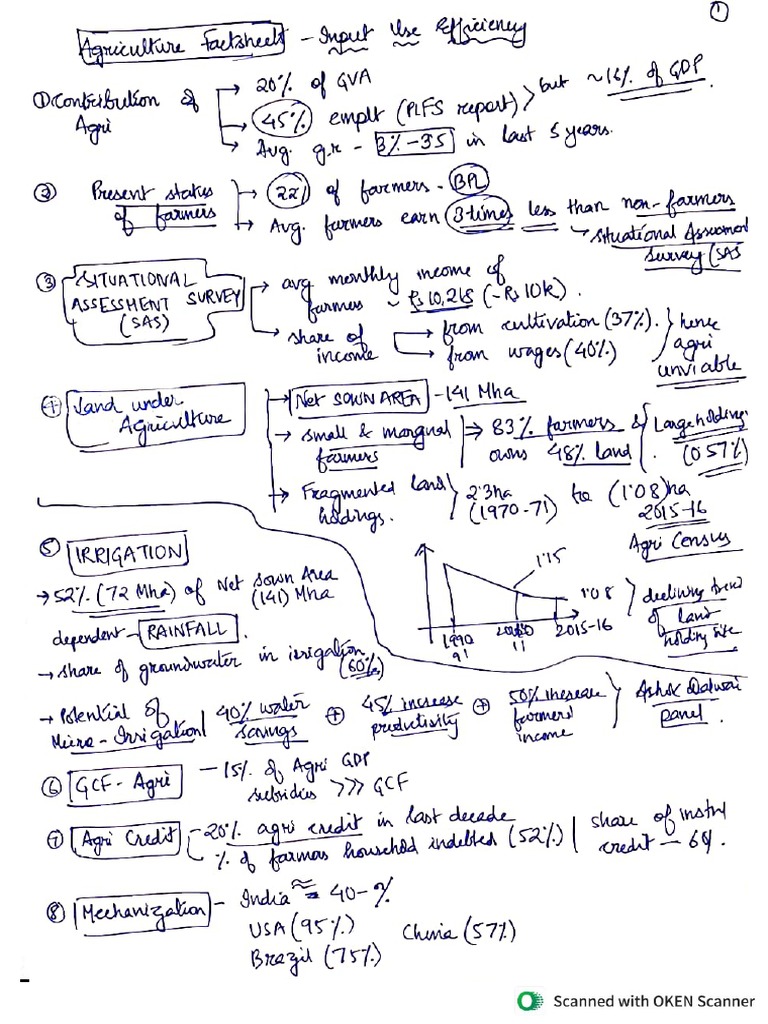 ①
Agriculture Factsheet - Input Use Efficiency
① Contribution of Agri
→ 20% of GVA
→ 45% emplt (PLFS report) > but ~16% of GDP
→ Avg. g.r - 3% - 3.5 in last 5 years.
② Present status of farmers
→ 22% of farmers - BPL
→ Avg. farmers earn 3 times less than non-farmers
↳ Situational Assessment Survey (SAS
③ SITUATIONAL ASSESSMENT SURVEY (SAS)
→ avg monthly income of farmers ~ Rs 10,218 (~Rs 10k).
→ share of income
→ from cultivation (37%).
→ from wages (40%)
} hence agri unviable
④ Land under Agriculture
→ Net SOWN AREA - 141 Mha
→ Small & marginal farmers ⇒ 83% farmers & owns 48% land
Large holding (0.57%)
→ Fragmented land holdings.
2.3ha (1970-71) to (1.08)ha 2015-16
Agri Census
⑤ IRRIGATION
→ 52% (72 Mha) of Net Sown Area (141) Mha
dependent - RAINFALL.
→ share of groundwater in irrigation (60%)
1.15
1.08
1990 91
11
2015-16
} declining trend of land holding size
→ Potential of Micro-Irrigation | 40% water savings + 45% increase productivity + 50% increase farmers' income } Ashok Dalwai panel.
⑥ GCF - Agri - 15% of Agri GDP
subsidies >>> GCF
⑦ Agri Credit - 20% agri credit in last decade
% of farmers household indebted (52%) | share of instnl credit - 60%.
⑧ Mechanization - India ≈ 40-%
USA (95%)
China (57%)
Brazil (75%)
Scanned with OKEN Scanner